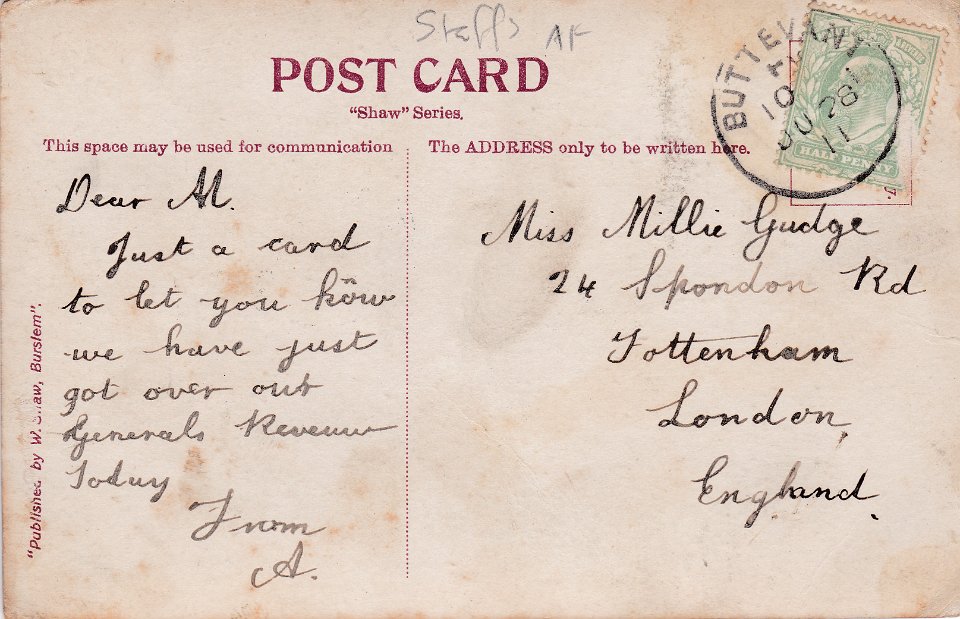 Staffs AF
POST CARD
"Shaw" Series.
This space may be used for communication
The ADDRESS only to be written here.
BUTTEVANT
10
JU 28
11
HALF PENNY
Dear M.
Just a card
to let you know
we have just
got over our
Generals Revenu
Today
From
A.
Miss Millie Gudge
24 Spondon Rd
Tottenham
London,
England.
"Published by W. Shaw, Burslem".